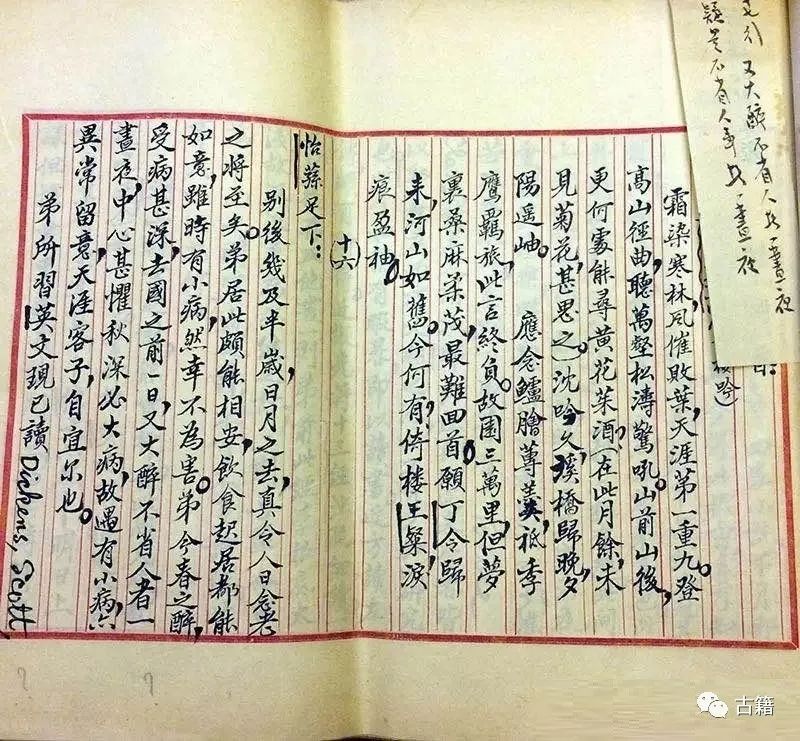 又大醉不省人者一晝夜
疑是不省人事者一晝夜
霜染寒林,风催敗葉,天涯第一重九。登
高山徑曲,聽萬壑松濤驚吼。山前山後,
更何處能尋黃花茱酒。(在此月餘,未
見菊花,甚思之。)沈吟久,溪橋歸晚,夕
陽遥岫。 應念鱸膾蓴羹,祗季
鷹羈旅,此言終負。故園三萬里,但夢
裏桑麻柔茂,最難回首。願丁令歸
来,河山如舊。今何有,倚楼王粲,淚
痕盈袖。
(十六)
怡蓀足下:
別後幾及半歲,日月之去,真令人日念老
之將至矣。弟居此頗能相安,飲食起居都能
如意,雖時有小病,然幸不為害。弟今春之醉,
受病甚深,去國之前一日,又大醉不省人者一
晝夜,中心甚懼秋深必大病,故遇有小病,亦
異常留意,天涯客子,自宜尔也。
弟所習英文現已讀 Dickens, Scott,
古籍